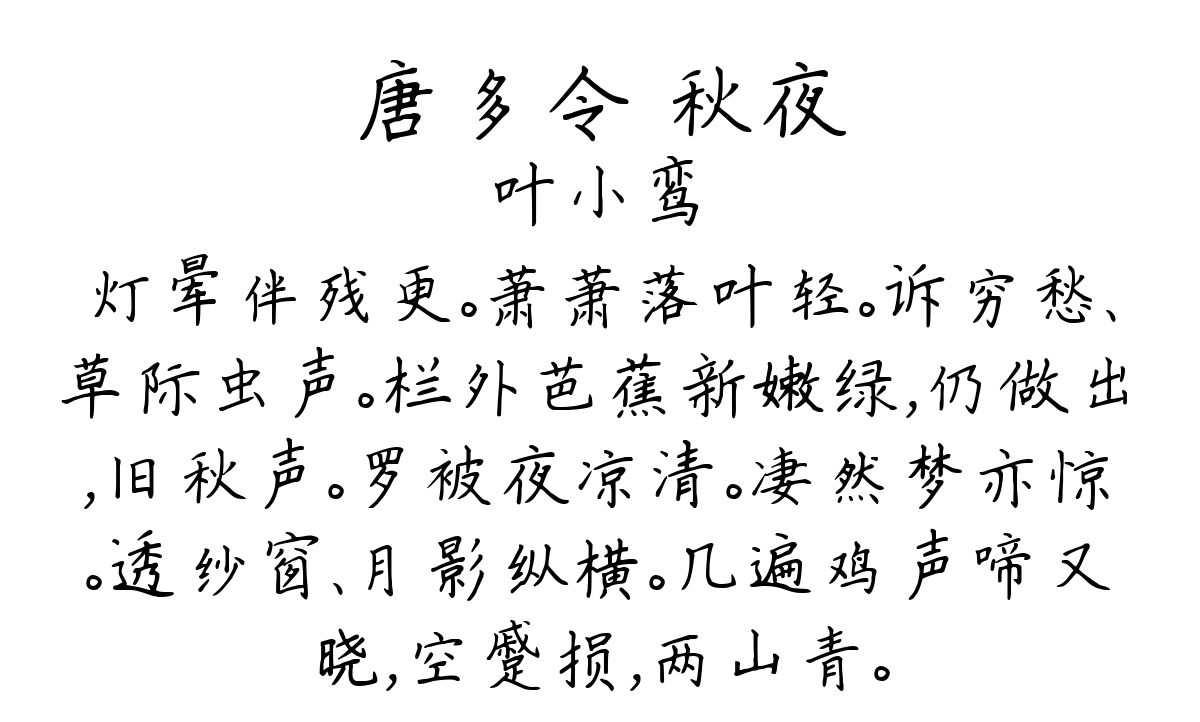 唐多令 秋夜
叶小鸾
灯晕伴残更。萧萧落叶轻。诉穷愁、
草际虫声。栏外芭蕉新嫩绿,仍做出
,旧秋声。罗被夜凉清。凄然梦亦惊
。透纱窗、月影纵横。几遍鸡声啼又
晓,空蹙损,两山青。